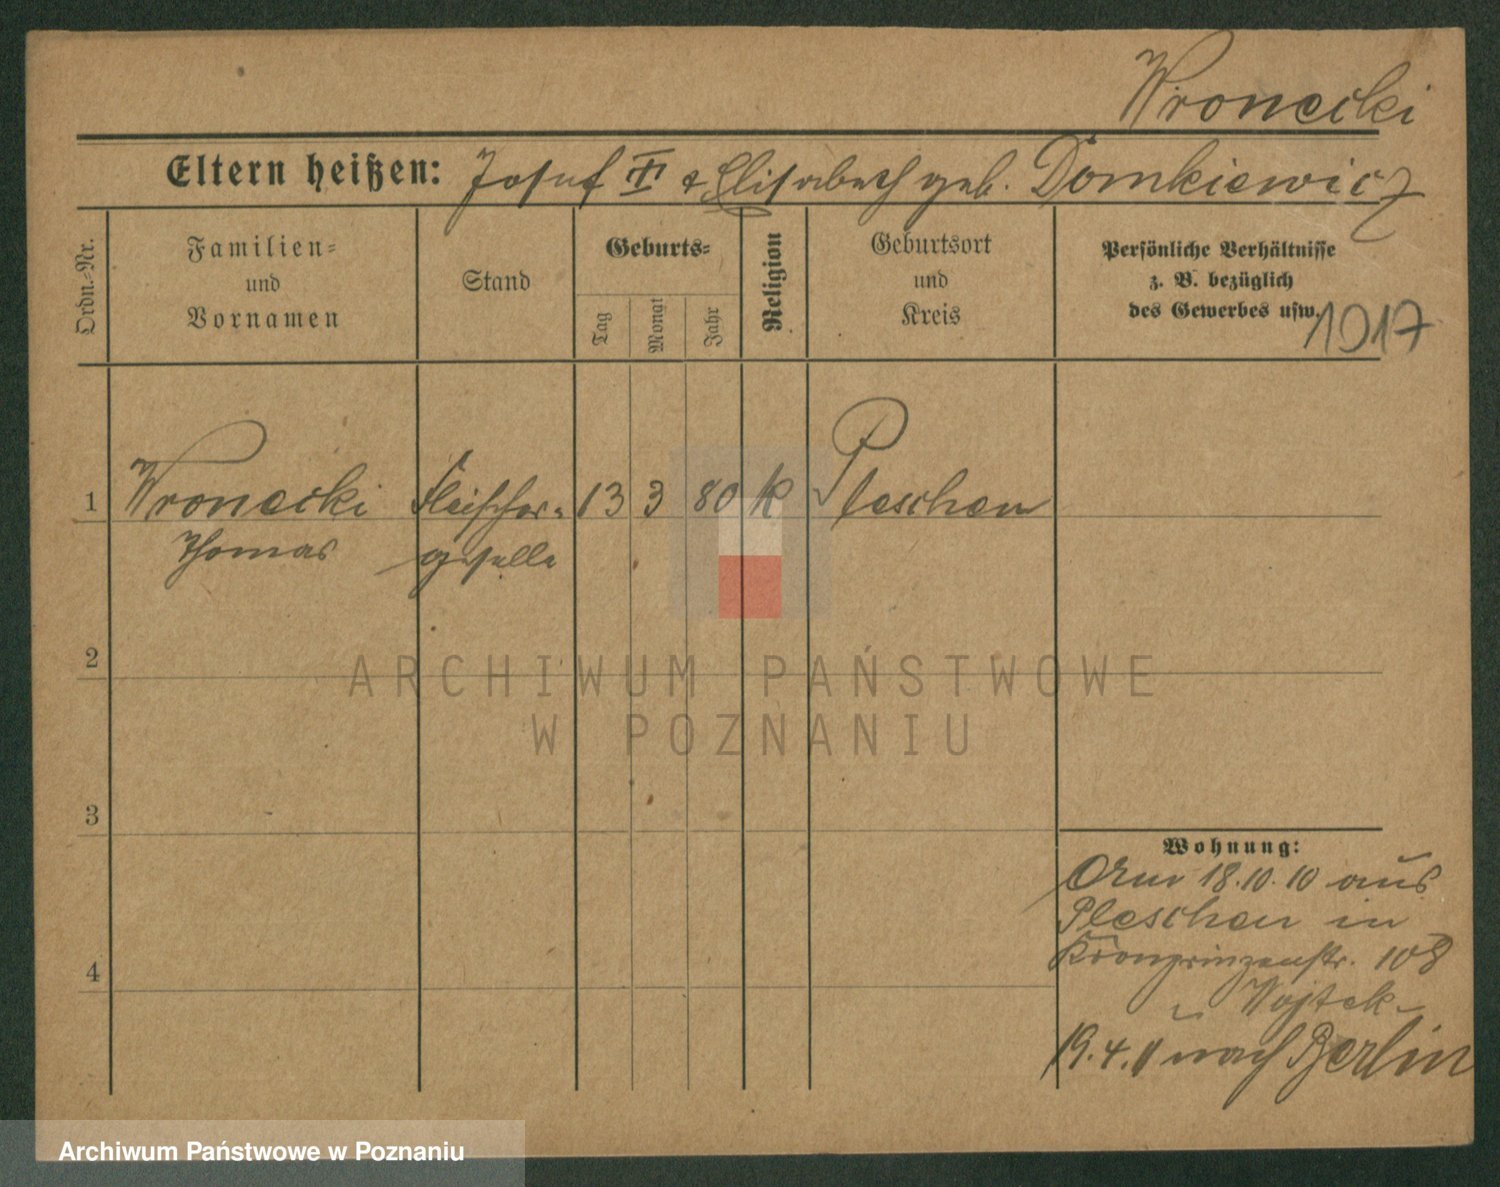 Wronecki
Eltern heißen: Josef & Elisabeth geb. Domkiewicz
Ordn.-Nr.
Familien- und Vornamen
Stand
Geburts-
Tag
Monat
Jahr
Religion
Geburtsort und Kreis
Persönliche Verhältnisse
z. B. bezüglich
des Gewerbes usw.
1917
1 Wronecki Fleischer- 13 3 80 k Pleschen
Thomas geselle
2
3
4
Wohnung:
18.10.10 aus
Pleschen in
Kronprinzenstr. 108
Wojtek
19.4.11 nach Berlin
ARCHIWUM PAŃSTWOWE
W POZNANIU
Archiwum Państwowe w Poznaniu